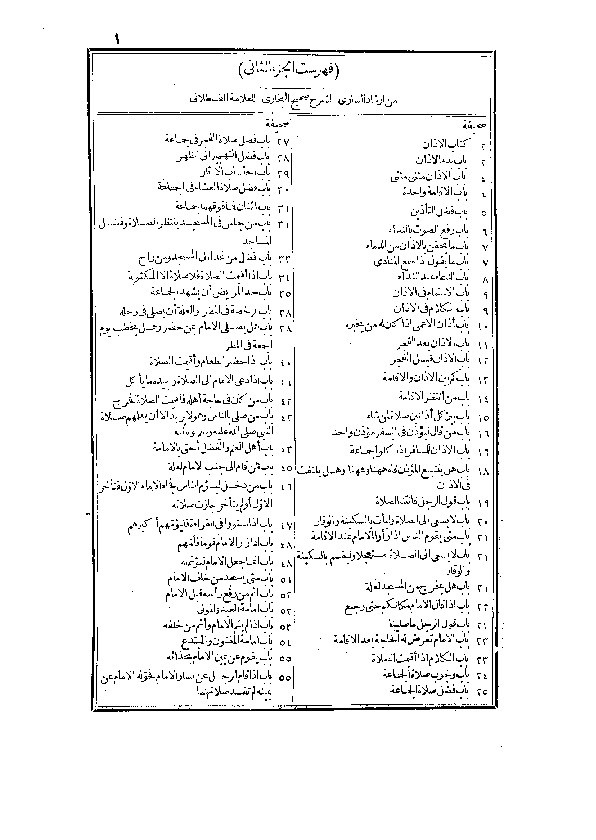 ١
(فهرست الجزء الثاني)
من ارشاد السارى لشرح صحيح البخارى للعلامة القسطلانى
صحيفة
٢ كتاب الاذان
٢ باب بدء الاذان
باب الاذان مثنى مثنى
باب الاقامة واحدة
٥ باب فضل التأذين
٦ باب رفع الصوت بالنداء
٧ باب ما يحقن بالاذان من الدماء
٧ باب ما يقول اذا سمع المنادى
٨ باب الدعاء عند النداء
٩ باب الاستهام فى الاذان
٩ باب الكلام فى الاذان
١٠ باب أذان الاعمى اذا كان له من يخبره
١١ باب الاذان بعد الفجر
١٢ باب الاذان قبل الفجر
١٣ باب كم بين الاذان والاقامة
١٤ باب من انتظر الاقامة
١٥ باب بين كل أذانين صلاة لمن شاء
١٦ باب من قال ليؤذن فى السفر مؤذن واحد
باب الاذان للمسافر اذا كانوا جماعة
١٨ باب هل يتتبع المؤذن فاه ههنا وههنا وهل يلتفت
فى الاذان
١٩ باب قول الرجل فاتتنا الصلاة
٢٠ باب لا يسعى الى الصلاة وليأت بالسكينة والوقار
٢١ باب متى يقوم الناس اذا رأوا الامام عند الاقامة
٢١ باب لا يسعى الى الصلاة مستعجلا وليقم بالسكينة
والوقار
٢١ باب هل يخرج من المسجد لعلة
باب اذا قال الامام مكانكم حتى رجع
باب قول الرجل ما صلينا
باب الامام تعرض له الحاجة بعد الاقامة
٢٣ باب الكلام اذا أقيمت الصلاة
٢٤ باب وجوب صلاة الجماعة
٢٥ باب فضل صلاة الجماعة
صحيفة
٢٧ باب فضل صلاة الفجر فى جماعة
٢٨ باب فضل التهجير الى الظهر
٢٩ باب احتساب الآثار
٣٠ باب فضل صلاة العشاء فى الجماعة
٣١ باب اثنان فما فوقهما جماعة
٣١ باب من جلس فى المسجد ينتظر الصلاة وفضل
المساجد
٣٣ باب فضل من غدا الى المسجد ومن راح
٣٤ باب اذا أقيمت الصلاة فلا صلاة الا المكتوبة
٣٥ باب حد المريض أن يشهد الجماعة
٣٨ باب الرخصة فى المطر والعلة أن يصلى فى رحله
٣٨ باب هل يصلى الامام بمن حضر وهل يخطب يوم
الجمعة فى المطر
٤٠ باب اذا حضر الطعام وأقيمت الصلاة
باب اذا دعى الامام الى الصلاة وبيده ما يأكل
٤٢ باب من كان فى حاجة أهله فأقيمت الصلاة فخرج
٤٢ باب من صلى بالناس وهو لا يريد الا أن يعلمهم صلاة
النبى صلى الله عليه وسلم وسنته
٤٣ باب أهل العلم والفضل أحق بالامامة
٤٥ باب من قام الى جنب الامام لعلة
٤٦ باب من دخل ليؤم الناس فجاء الامام الاول فتأخر
الاول أولم يتأخر جازت صلاته
٤٧ باب اذا استووا فى القراءة فليؤمهم أكبرهم
٤٨ باب اذا زار الامام قوما فأمهم
٤٨ باب انما جعل الامام ليؤتم به
باب متى يسجد من خلف الامام
٥٢ باب اثم من رفع رأسه قبل الامام
٥٢ باب امامة العبد والمولى
٥٣ باب اذا لم يتم الامام وأتم من خلفه
٥٤ باب امامة المفتون والمبتدع
٥٥ باب يقوم عن يمين الامام بحذائه
٥٥ باب اذا قام الرجل عن يسار الامام فحوله الامام عن
يمينه لم تفسد صلاتهما